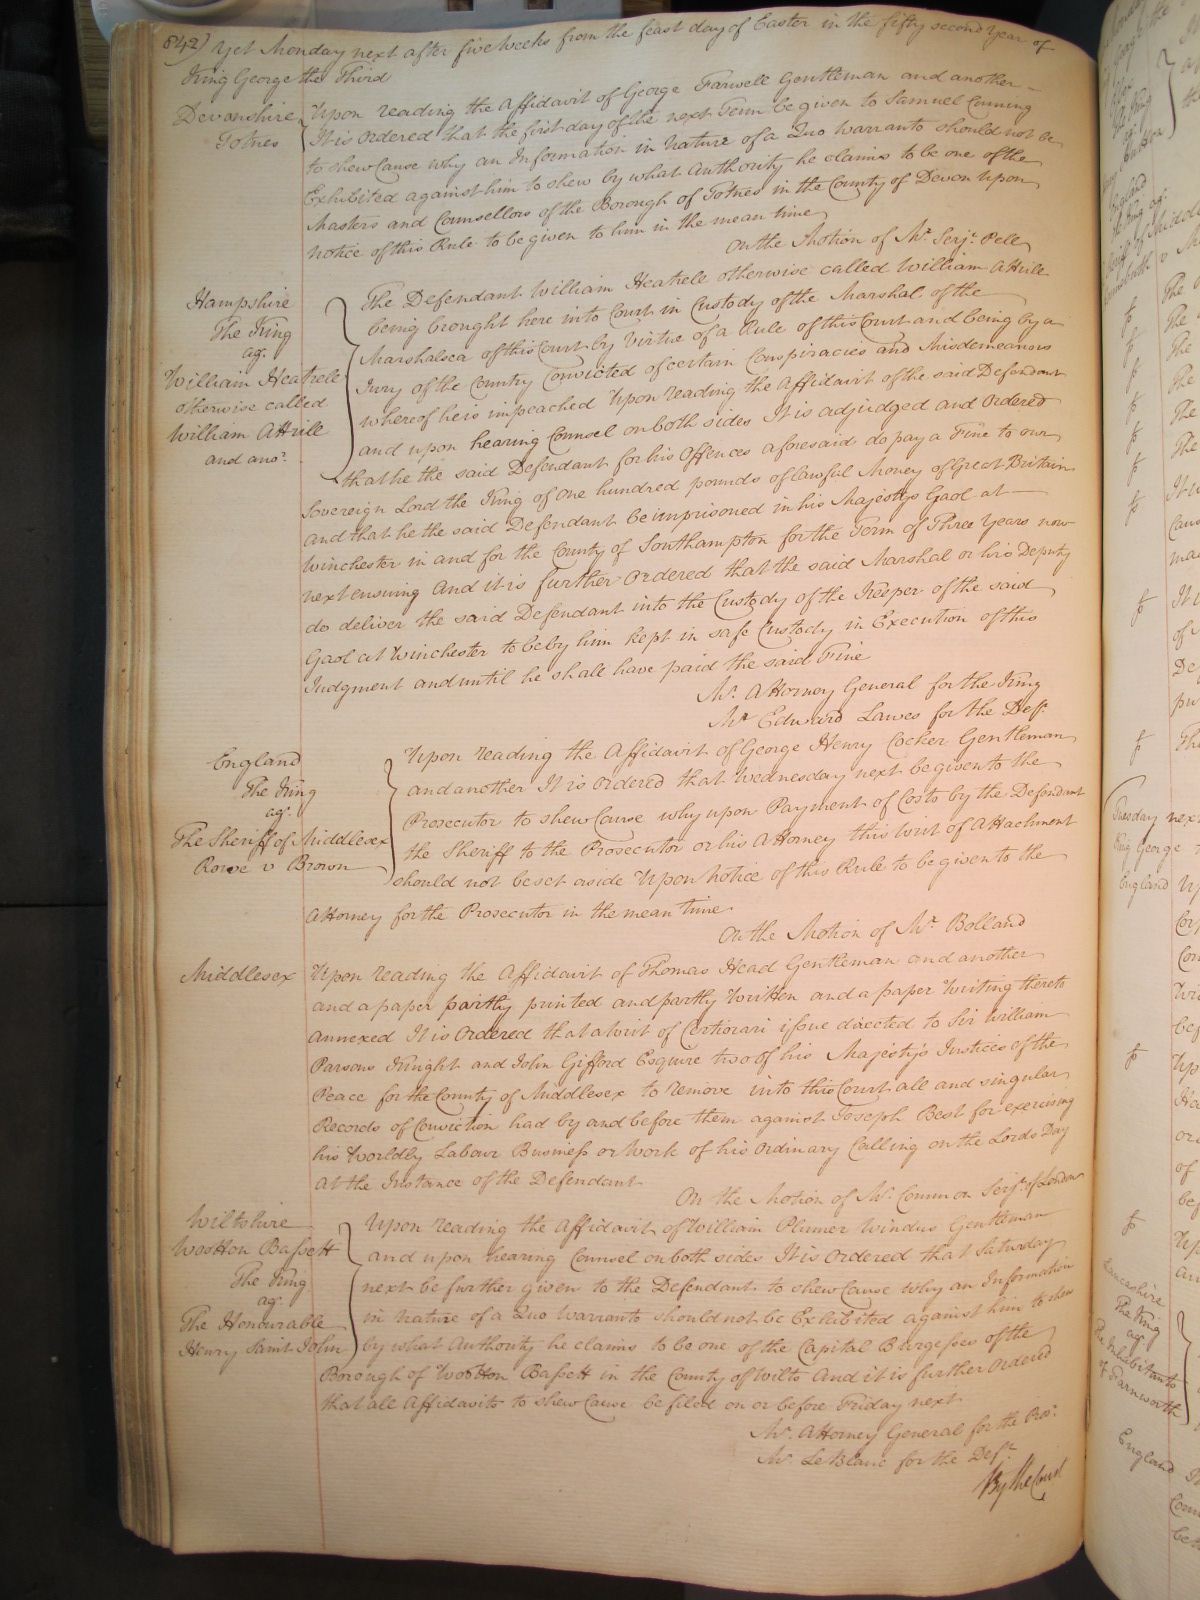 842) Yet Monday next after five weeks from the feast day of Easter in the fifty second Year of
King George the Third
Devonshire
Totnes
Upon reading the Affidavit of George Farwell Gentleman and another
It is ordered that the first day of the next Term be given to Samuel Cuming
to shew Cause why an Information in Nature of a Quo Warranto should not be
Exhibited against him to shew by what Authority he claims to be one of the
Masters and Counsellors of the Borough of Totnes in the County of Devon Upon
notice of this Rule to be given to him in the mean time
On the Motion of Mr. Serjt. Pell
Hampshire
The King
agt.
William Heatrele
otherwise called
William Attrile
and anor.
The Defendant William Heatrele otherwise called William Attrile
being brought here into Court in Custody of the Marshal of the
Marshalsea of this Court by virtue of a Rule of this Court and being by a
Jury of the Country Convicted of certain Conspiracies and Misdemeanors
whereof he is impeached Upon reading the Affidavit of the said Defendant
and upon hearing Counsel on both sides It is adjudged and Ordered
that he the said Defendant for his Offences aforesaid do pay a Fine to our
Sovereign Lord the King of one hundred pounds of lawful Money of Great Britain
and that he the said Defendant be imprisoned in his Majestys Gaol at
Winchester in and for the County of Southampton for the Term of Three Years now
next ensuing And it is further Ordered that the said Marshal or his Deputy
do deliver the said Defendant into the Custody of the Keeper of the said
Gaol at Winchester to be by him kept in safe Custody in Execution of this
Judgment and until he shall have paid the said Fine
Mr. Attorney General for the King
Mr. Edward Lawes for the Deft.
England
The King
agt.
The Sheriff of Middlesex
Rowe v Brown
Upon reading the Affidavit of George Henry Cocker Gentleman
and another It is Ordered that Wednesday next be given to the
Prosecutor to shew Cause why upon Payment of Costs by the Defendant
the Sheriff to the Prosecutor or his Attorney this Writ of Attachment
should not be set aside Upon Notice of this Rule to be given to the
Attorney for the Prosecutor in the mean time
On the Motion of Mr. Bolland
Middlesex
Upon reading the Affidavit of Thomas Head Gentleman and another
and a paper partly printed and partly Written and a paper Writing thereto
annexed It is Ordered that a Writ of Certiorari issue directed to Sir William
Parsons Knight and John Gifford Esquire two of his Majesty's Justices of the
Peace for the County of Middlesex to remove into this Court all and singular
Records of Conviction had by and before them against Joseph Best for exercising
his Worldly Labour Business or Work of his Ordinary Calling on the Lords Day
At the Instance of the Defendant
On the Motion of Mr. Common Serjt. of London
Wiltshire
Wootton Bassett
The King
agt.
The Honourable
Henry Saint John
Upon reading the Affidavit of William Plumer Windus Gentleman
and upon hearing Counsel on both sides It is Ordered that Saturday
next be further given to the Defendant to shew Cause why an Information
in Nature of a Quo Warranto should not be Exhibited against him to shew
by what Authority he claims to be one of the Capital Burgesses of the
Borough of Wootton Bassett in the County of Wilts And it is further Ordered
that all Affidavits to shew Cause be filed on or before Friday next
Mr. Attorney General for the Pros.
Mr. Le Blanc for the Deft.
By the Court
Tuesday next
King George
England
Lancashire
The King
agt.
The Inhabitants
of Farnworth
England